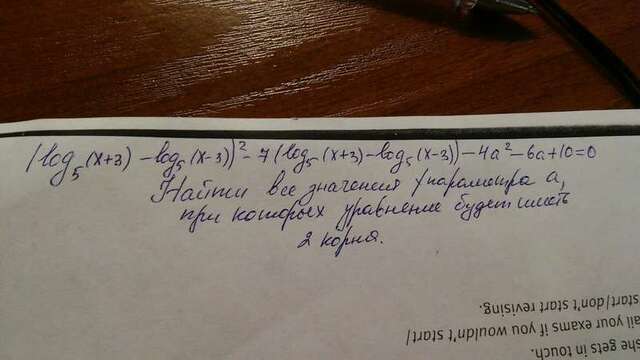 (log₅(x+3) - log₅(x-3))² - 7(log₅(x+3) - log₅(x-3)) - 4a² - 6a + 10 = 0
Найти все значения параметра a,
при которых уравнение будет иметь
2 корня.
she gets in touch.
all your exams if you wouldn't start/
start/don't start revising.